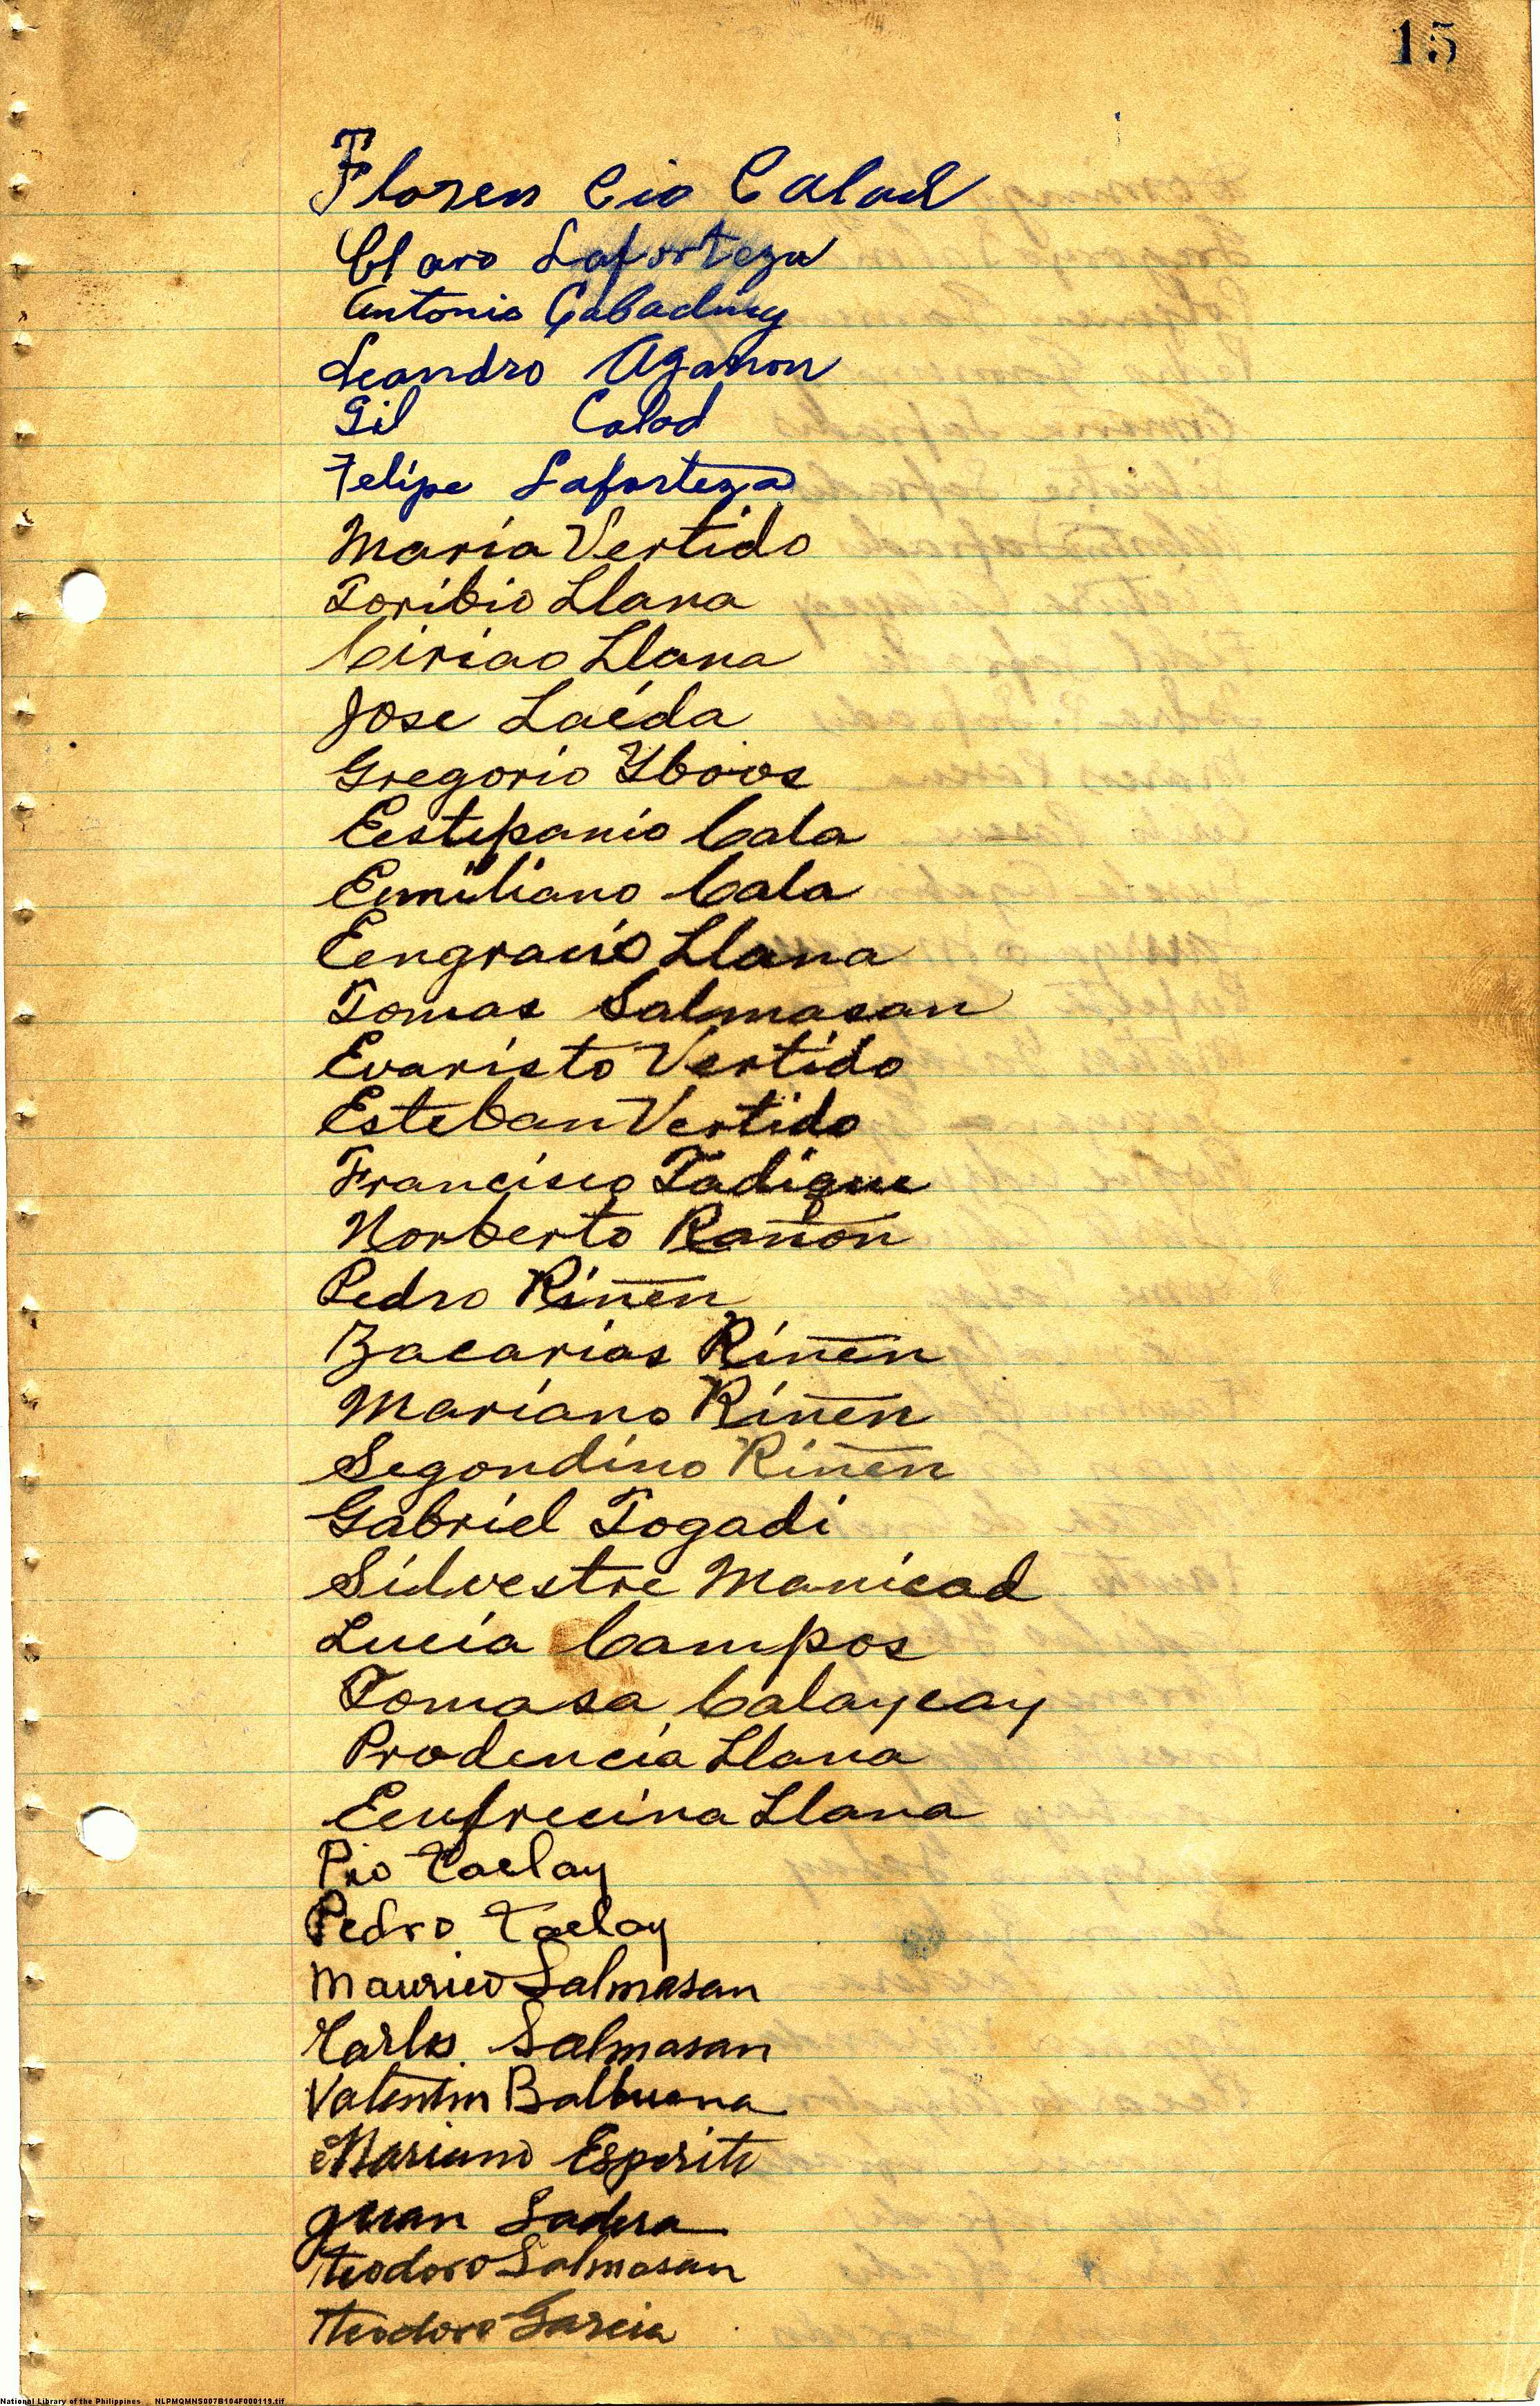 15
Floren Cio Calad
Claro Laforteza
Antonio Cabading
Leandro Aganon
Gil Calad
Felipe Laforteza
Maria Vertido
Toribio Llana
Ciriao Llana
Jose Laeda
Gregorio Yboos
Eestepanio Cala
Eemiliano Cala
Eengracio Llana
Tomas Salmasan
Evaristo Vertido
Esteban Vertido
Francisco Tadique
Norberto Rañon
Pedro Riñen
Zacarias Riñen
Mariano Riñen
Segondino Riñen
Gabriel Togadi
Silvestre Manicad
Lucia Campos
Tomasa Calaycay
Prodencia Llana
Eeufrecina Llana
Pio Taclay
Pedro Taclay
Mauricio Salmasan
Karlos Salmasan
Valentin Balbuena
Mariano Esperito
Juan Ladera
Teodoro Salmasan
Teodoro Garcia
National Library of the Philippines NLPMQMNS007B104F000119.tif